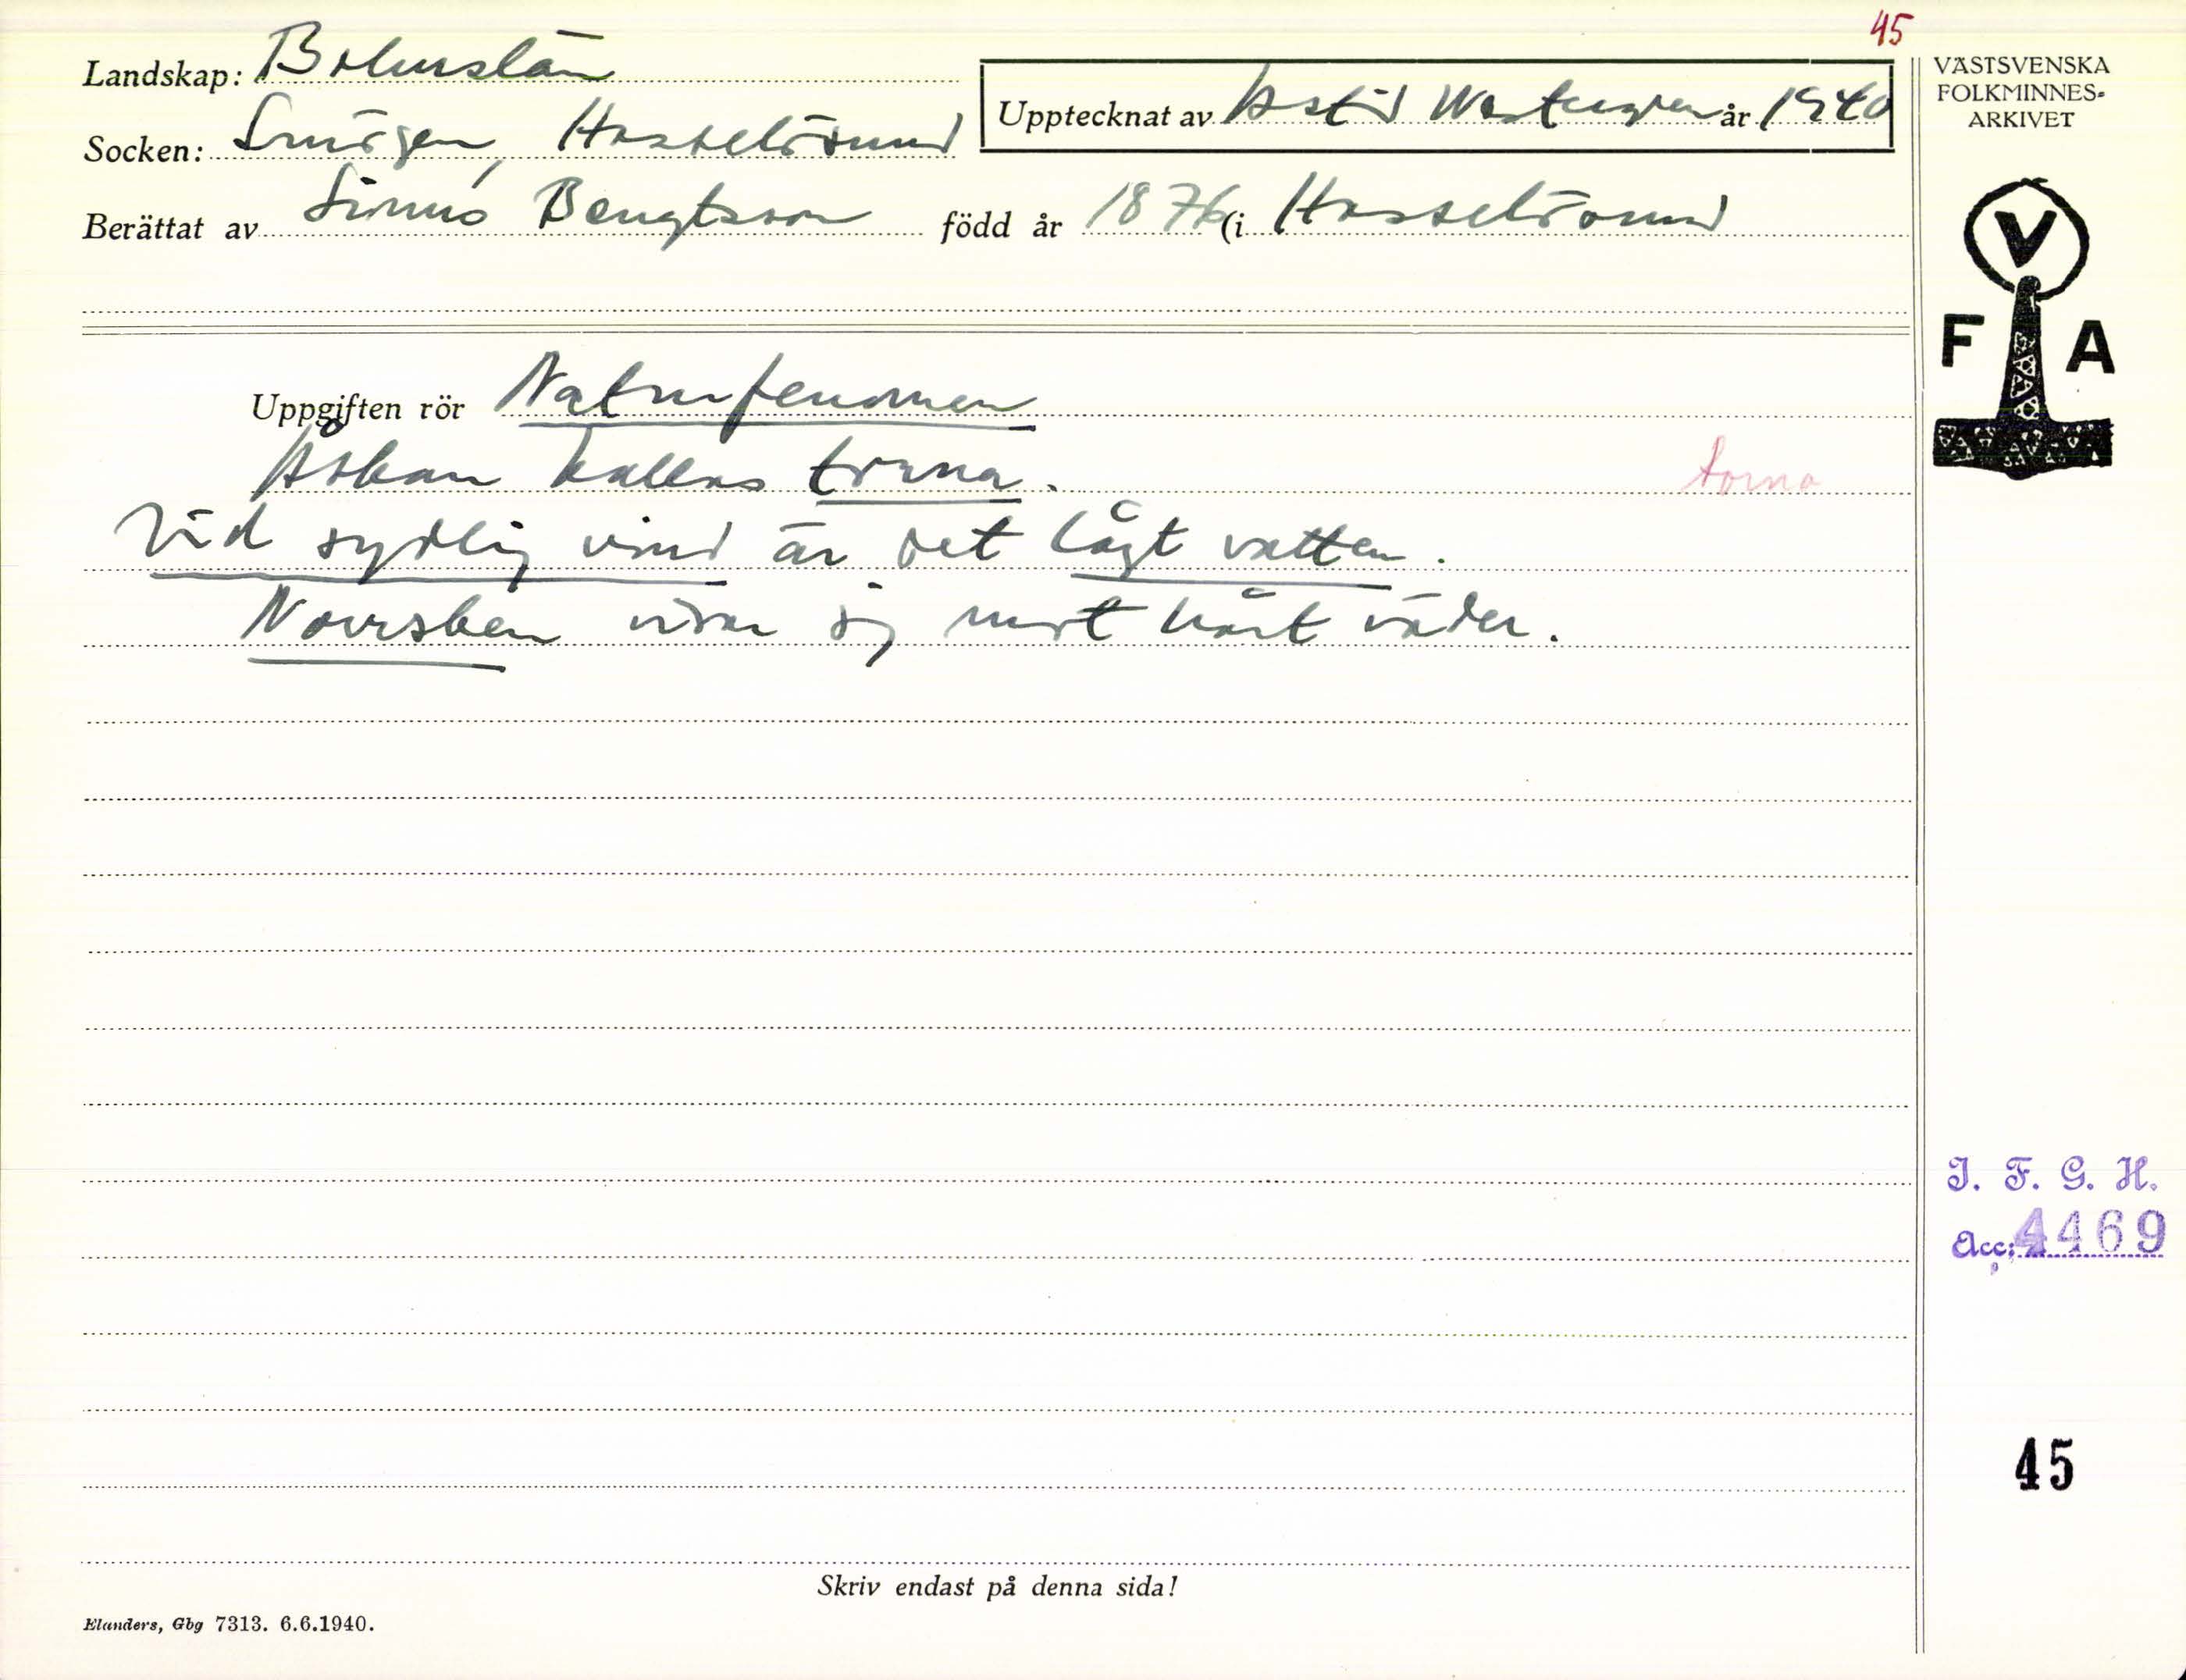 45
Landskap: Bohuslän
Socken: Smögen, Hasselösund
Upptecknat av Astrid Westergren år 1940
Berättat av Linus Bengtsson född år 1876 i Hasselösund
VÄSTSVENSKA
FOLKMINNES-
ARKIVET
V
F A
Uppgiften rör Naturfenomen
Åskan kallas torna. torna
Vid sydlig vind är det lågt vatten.
Norrsken visar sig mot hårt väder.
I. F. G. H.
Acc: 4469
45
Skriv endast på denna sida!
Elanders, Gbg 7313. 6.6.1940.